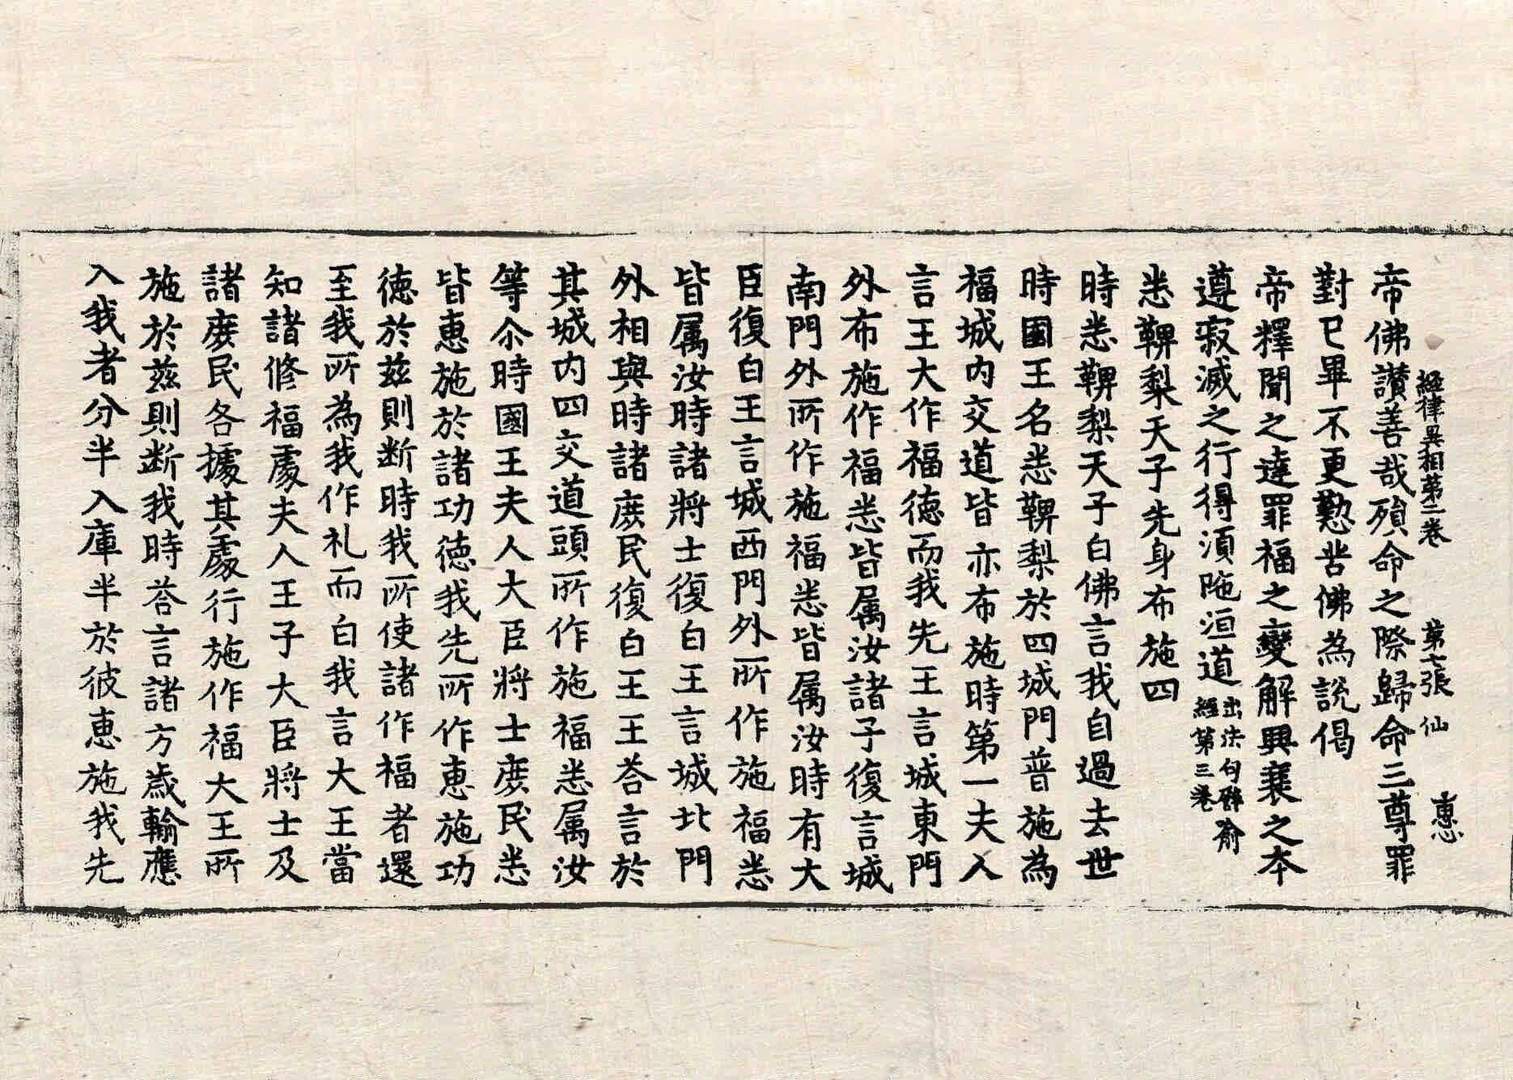 經律異相第二卷　第七張　仙　惠
帝佛讃善哉殞命之際歸命三尊罪
對已畢不更懃苦佛為說偈
帝釋聞之達罪福之變解興衰之本
遵寂滅之行得須陁洹道出法句譬喻經第三卷
悉鞞梨天子先身布施四
時悉鞞梨天子白佛言我自過去世
時國王名悉鞞梨於四城門普施為
福城内交道皆亦布施時第一夫人
言王大作福徳而我先王言城東門
外布施作福悉皆属汝諸子復言城
南門外所作施福悉皆属汝時有大
臣復白王言城西門外所作施福悉
皆属汝時諸將士復白王言城北門
外相與時諸庶民復白王王荅言於
其城内四交道頭所作施福悉属汝
等尒時國王夫人大臣將士庶民悉
皆惠施於諸功徳我先所作惠施功
徳於兹則断時我所使諸作福者還
至我所為我作礼而白我言大王當
知諸修福處夫人王子大臣將士及
諸庶民各據其處行施作福大王所
施於兹則断我時荅言諸方歳輸應
入我者分半入庫半於彼惠施我先